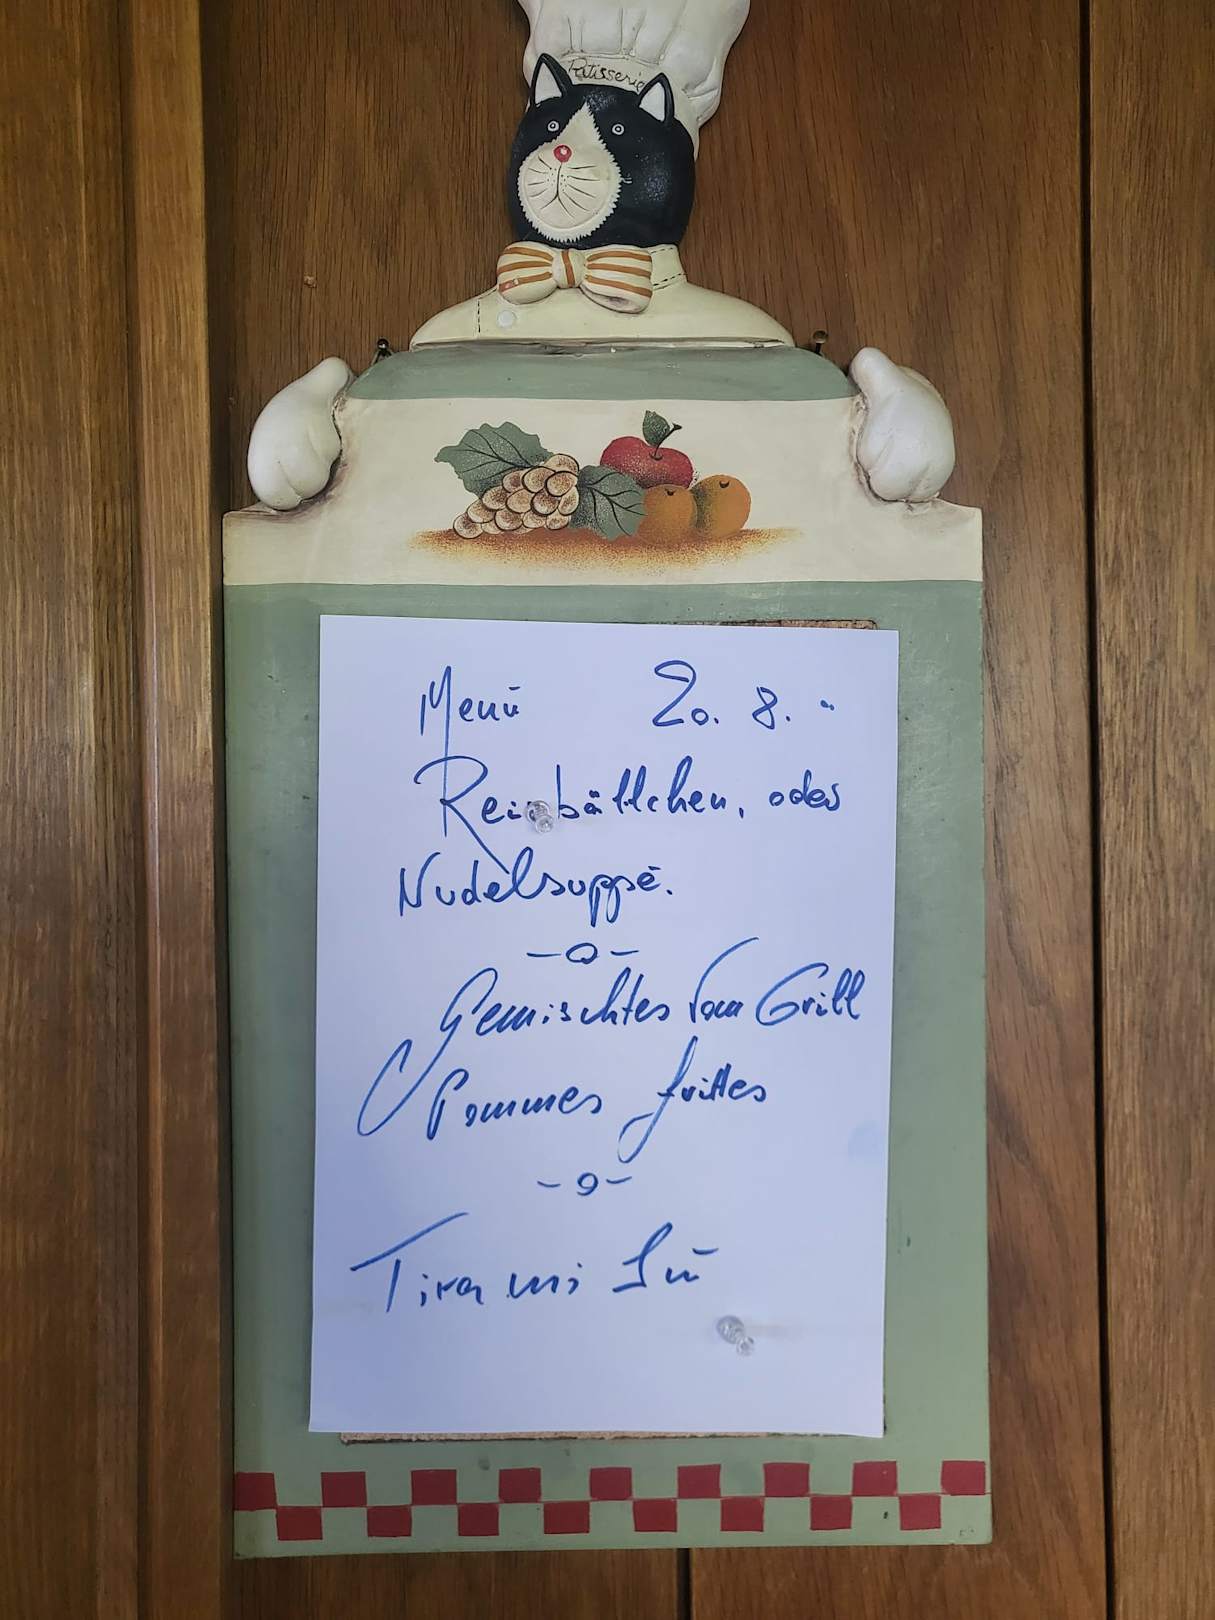 Patisserie
Menü 20. 8.
Reisbällchen, oder
Nudelsuppe.
Gemischtes vom Grill
Pommes frittes
Tira mi Sù